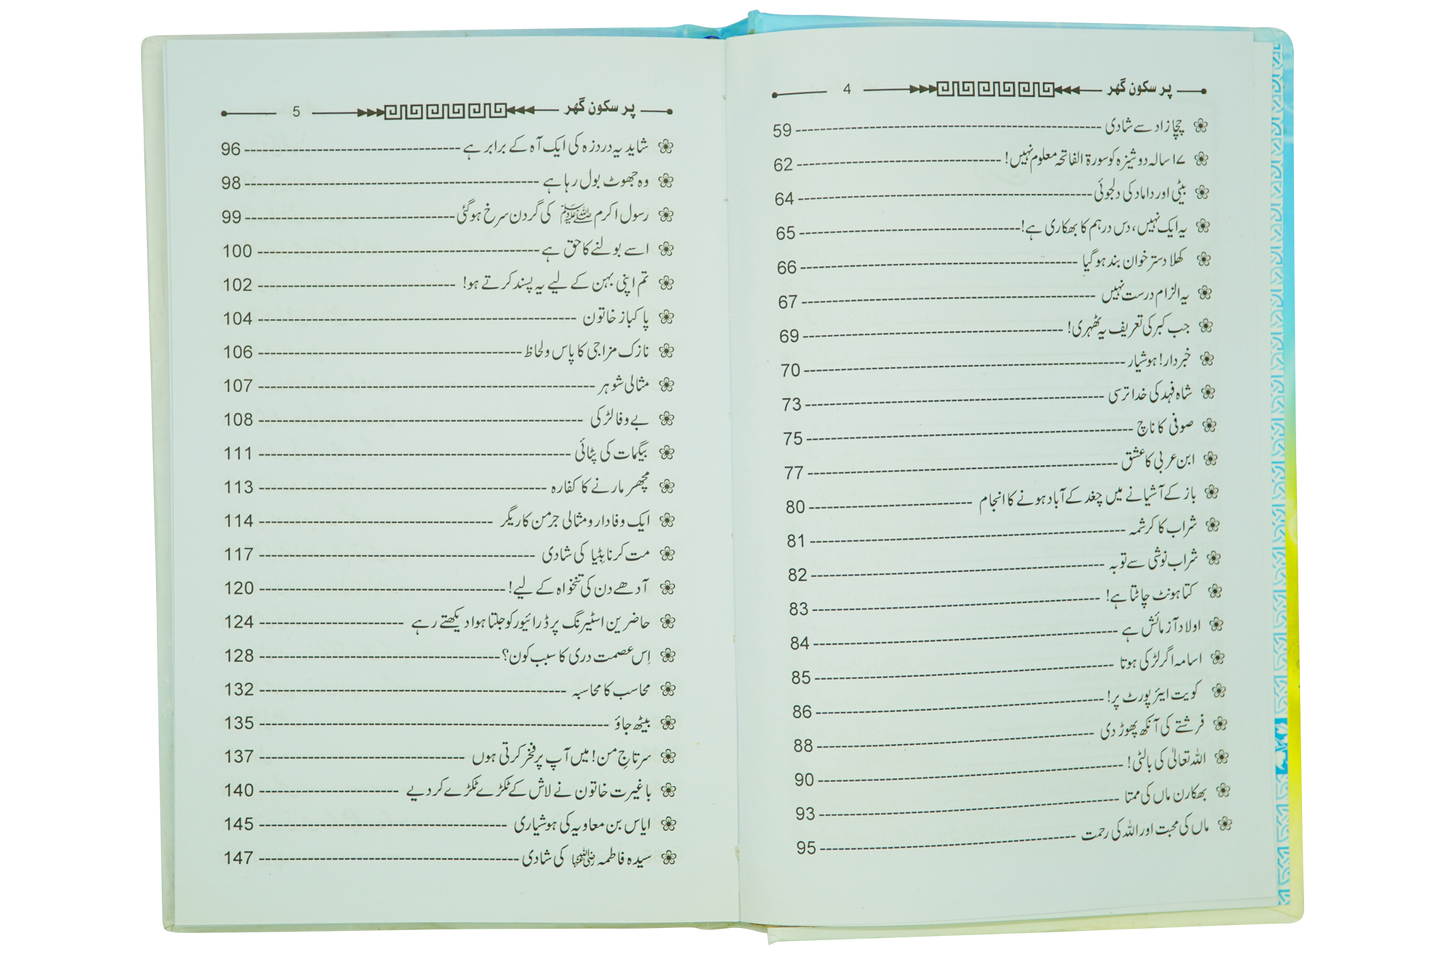 پر سکون گھر 4
چچا زاد سے شادی 59
۱۷ سالہ دوشیزہ کو سورۃ الفاتحہ معلوم نہیں! 62
بیٹی اور داماد کی دلجوئی 64
یہ ایک نہیں، دس درہم کا بھکاری ہے! 65
کھلا دسترخوان بند ہو گیا 66
یہ الزام درست نہیں 67
جب کبر کی تعریف یہ ٹھہری! 69
خبردار! ہوشیار 70
شاہ فہد کی خدا ترسی 73
صوفی کا ناچ 75
ابن عربی کا عشق 77
باز کے آشیانے میں چغد کے آباد ہونے کا انجام 80
شراب کا کرشمہ 81
شراب نوشی سے توبہ 82
کتا ہونٹ چاٹتا ہے! 83
اولاد آزمائش ہے 84
اسامہ اگر لڑکی ہوتا 85
کویت ایئرپورٹ پر! 86
فرشتے کی آنکھ پھوڑ دی 88
اللہ تعالیٰ کی بالٹی! 90
بھکارن ماں کی ممتا 93
ماں کی محبت اور اللہ کی رحمت 95
پر سکون گھر 5
شاید یہ دردزہ کی ایک آہ کے برابر ہے 96
وہ جھوٹ بول رہا ہے 98
رسول اکرم ﷺ کی گردن سرخ ہو گئی 99
اسے بولنے کا حق ہے 100
تم اپنی بہن کے لیے یہ پسند کرتے ہو! 102
پاکباز خاتون 104
نازک مزاجی کا پاس و لحاظ 106
مثالی شوہر 107
بے وفا لڑکی 108
بیگمات کی پٹائی 111
مچھر مارنے کا کفارہ 113
ایک وفادار و مثالی جرمن کاریگر 114
مت کرنا بِٹیا کی شادی 117
آدھے دن کی تنخواہ کے لیے! 120
حاضرین اسٹیرنگ پر ڈرائیور کو جلتا ہوا دیکھتے رہے 124
اِس عصمت دری کا سبب کون؟ 128
محاسب کا محاسبہ 132
بیٹھ جاؤ 135
سرتاجِ من! میں آپ پر فخر کرتی ہوں 137
باغیرت خاتون نے لاش کے ٹکڑے ٹکڑے کر دیے 140
ایاس بن معاویہ کی ہوشیاری 145
سیدہ فاطمہ رضی اللہ عنہا کی شادی 147